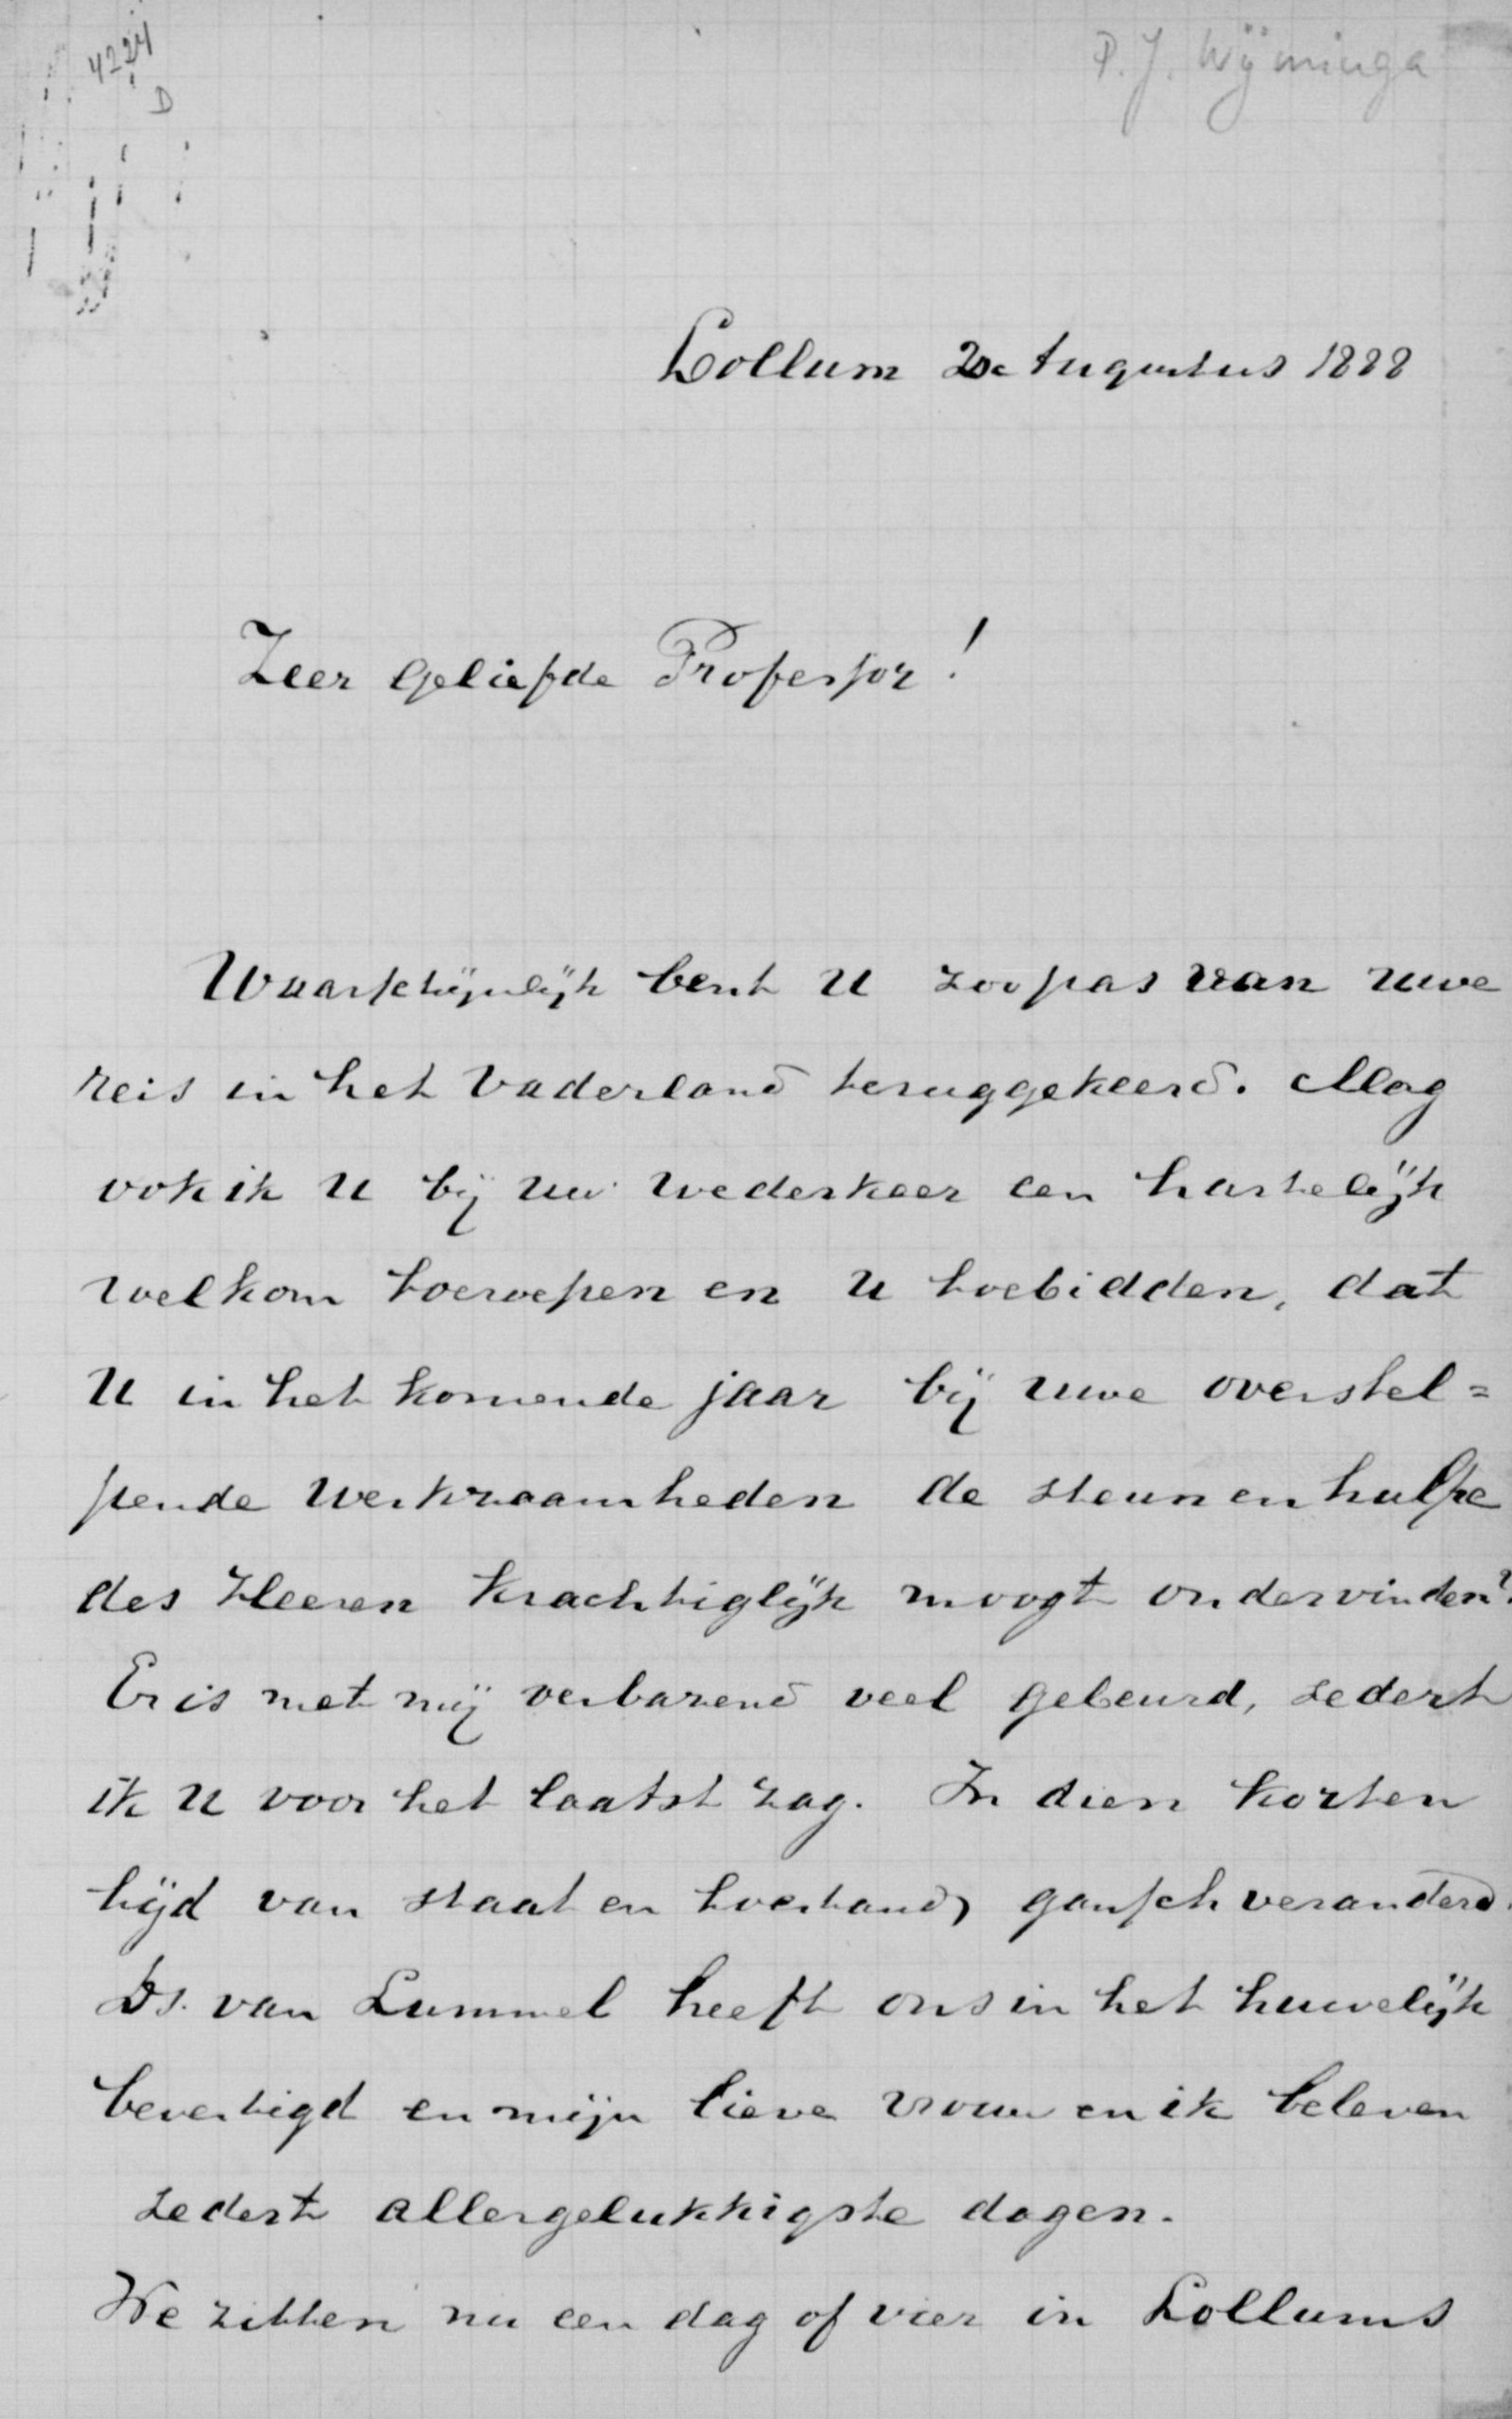 4224
D
P. J. Wijminga
Lollum 20 Augustus 1888
Zeer geliefde Professor!
Waarschijnlijk bent U zoo pas van uwe
reis in het Vaderland teruggekeerd. Mag
ook ik U bij uw wederkeer een hartelijk
welkom toeroepen en U toebidden, dat
U in het komende jaar bij uwe overstel=
pende werkzaamheden de steun en hulpe
des Heeren krachtiglijk moogt ondervinden?
Er is met mij verbazend veel gebeurd, zedert
ik U voor het laatst zag. In dien korten
tijd van staat en toestand, gansch veranderd.
Ds. van Lummel heeft ons in het huwelijk
bevestigd en mijn lieve vrouw en ik beleven
zedert allergelukkigste dagen.
We zitten nu een dag of vier in Lollums